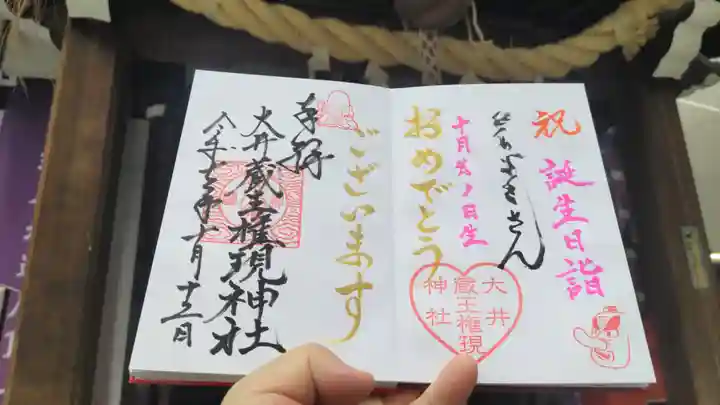 祝
誕生日詣
さん
日生
おめでとう
ございます
大井
蔵王権現
神社
奉拝
大井蔵王権現神社
十月十三日